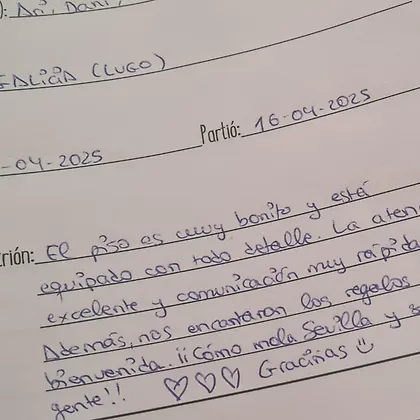 ): Ari, Dani,
GALICIA (LUGO)
Partió: 16-04-2025
-04-2025
rión: El piso es muy bonito y está
equipado con todo detalle. La aten
excelente y comunicación muy rápida
Además, nos encantaron los regalos
bienvenida. ¡¡Cómo mola Sevilla y s
gente!! ♡♡♡ Graciñas ☺